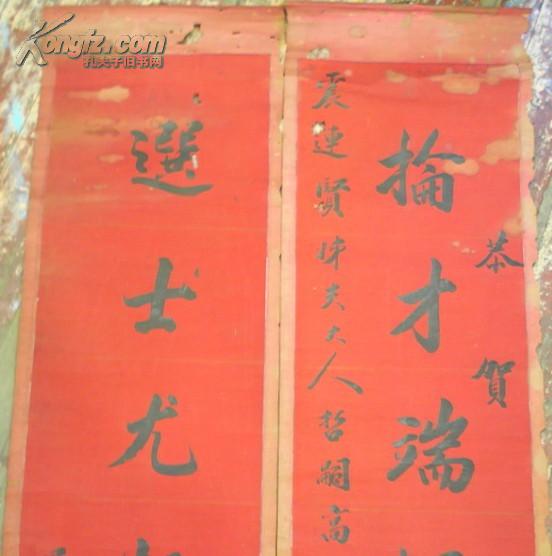 Kongfz.com
孔夫子旧书网
恭賀
掄才端
震連賢姊夫大人哲嗣高
選士尤